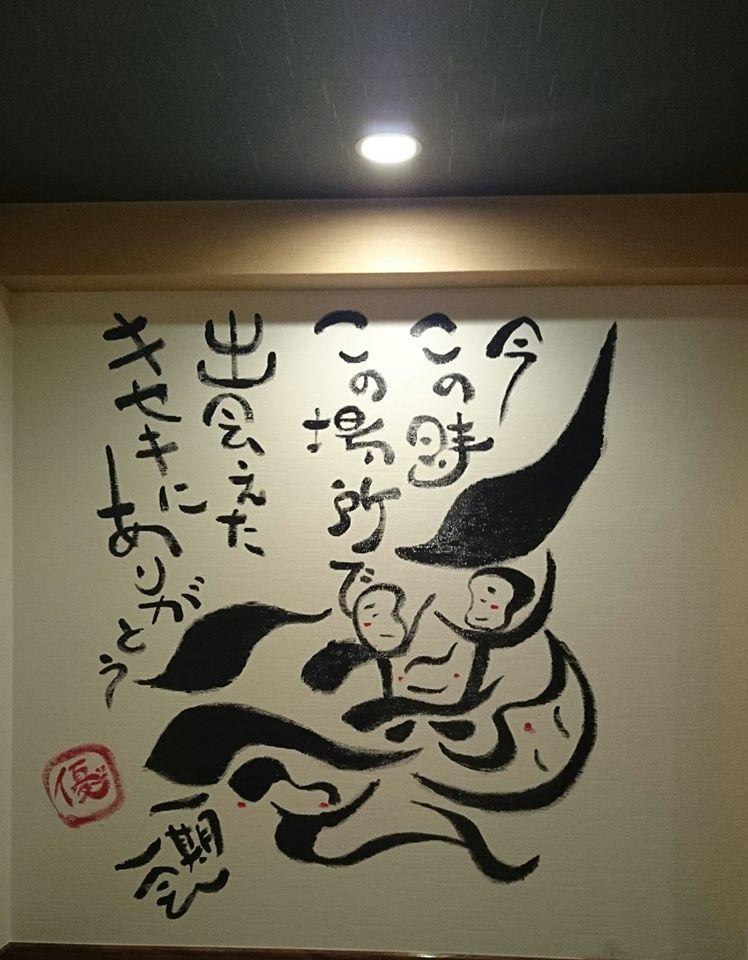 今
この時
この場所で
出会えた
キセキに
ありがとう
一期一会
優